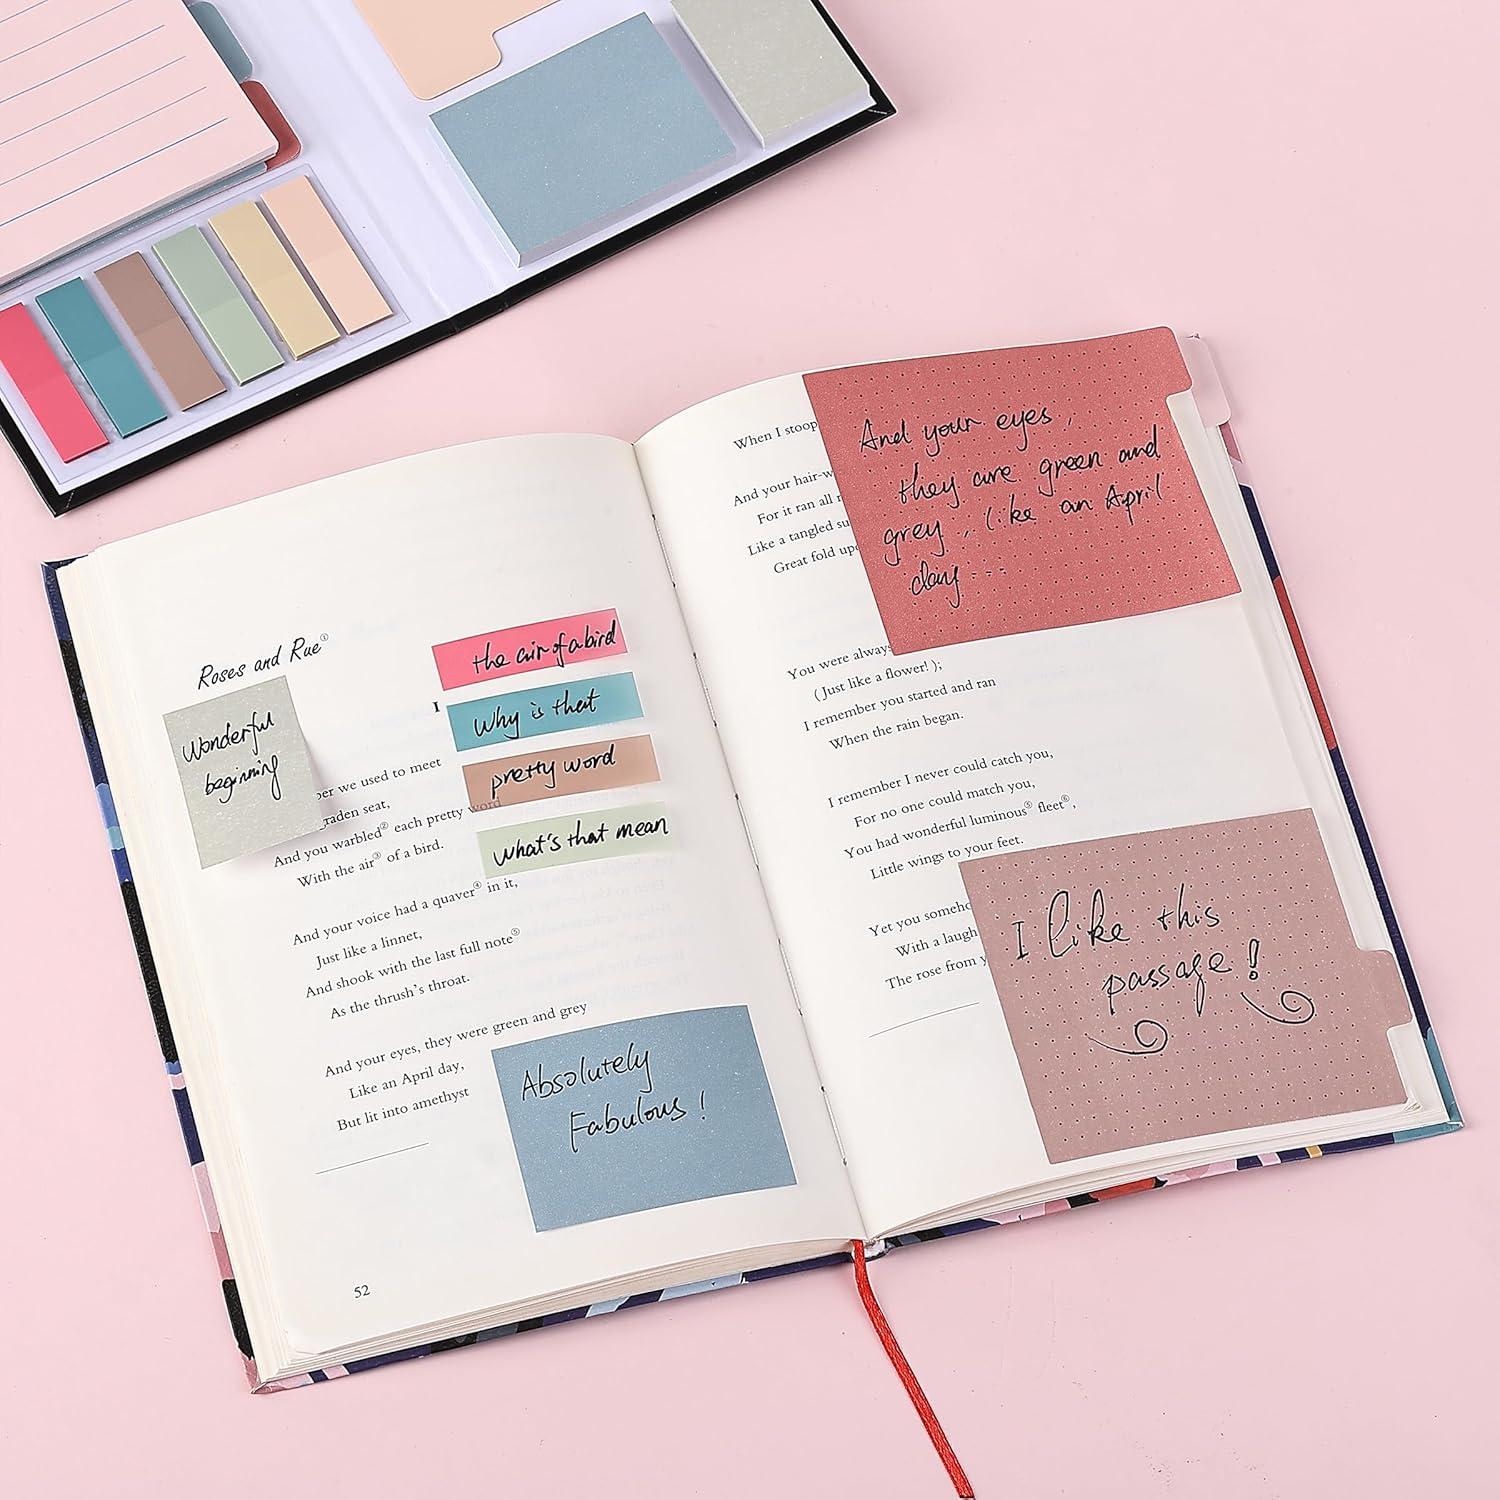 Roses and Rue①
I
Wonderful
beginning
the air of a bird
Why is that
pretty word
what's that mean
ber we used to meet
graden seat,
And you warbled② each pretty word
With the air③ of a bird.
And your voice had a quaver④ in it,
Just like a linnet,
And shook with the last full note⑤
As the thrush's throat.
And your eyes, they were green and grey
Like an April day,
But lit into amethyst
Absolutely
Fabulous!
52
When I stoop
And your hair-w
For it ran all
Like a tangled su
Great fold upo
And your eyes,
they are green and
grey, like an April
day...
You were always
(Just like a flower! );
I remember you started and ran
When the rain began.
I remember I never could catch you,
For no one could match you,
You had wonderful luminous⑤ fleet⑥,
Little wings to your feet.
Yet you someho
With a laugh
The rose from y
I like this
passage!